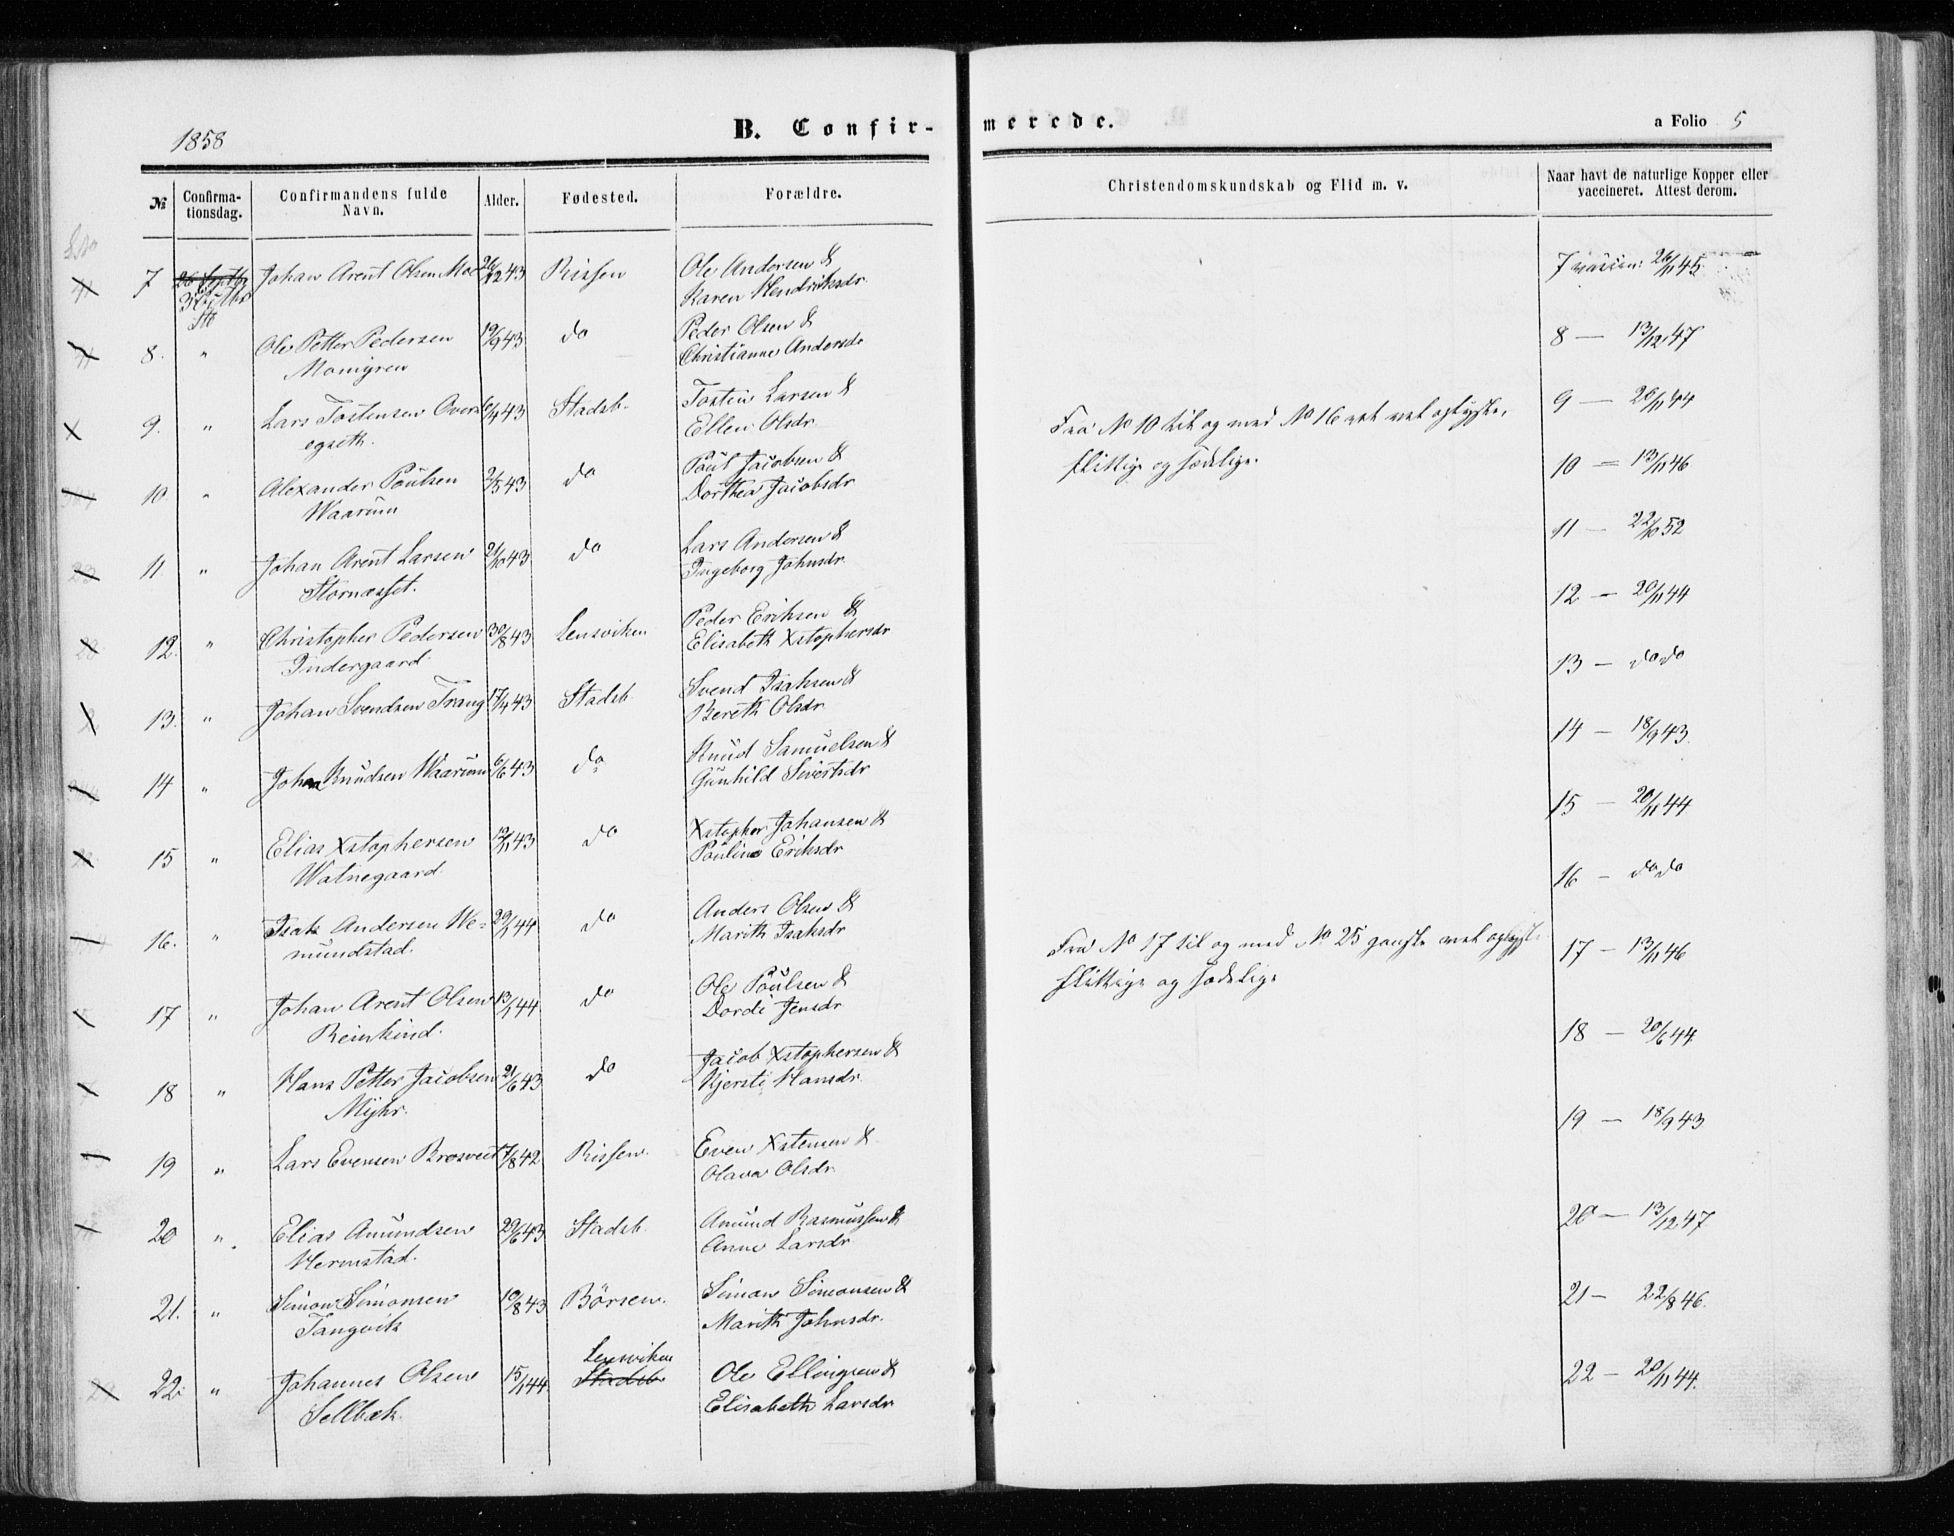 1858
B. Confirmerede.
a Folio 5
№ Confirmationsdag. Confirmandens fulde Navn. Alder. Fødested. Forældre. Christendomskundskab og Flid m. v. Naar havt de naturlige Kopper eller vaccineret. Attest derom.
7 Johan Arent Olsen Moe 26/12 43 Rissen Ole Andersen & 7 vaccin: 26/11 45
Karen Hendriksdr
8. " Ole Petter Pedersen 19/9 43 do Peder Olsen & 8 — 13/12 47
Momyren Christianne Andersdr
9. " Lars Tostensen Overs 6/11 43 Stadsb. Tostein Larsen & 9 — 20/11 44
egseth. Ellen Olsdr
Fra No 10 til og med No 16 vel oplyste,
flittige og sædelige.
10 " Alexander Poulsen 2/5 43 do Poul Jacobsen & 10 — 13/11 46
Waarum Dorthea Jacobsdr
11 " Johan Arent Larsen 21/10 43 do Lars Andersen & 11 — 22/10 52
Stornæsset. Ingeborg Johnsdr.
12. " Christopher Pedersen 30/8 43 Lensviken Peder Eriksen & 12 — 20/11 44
Indergaard. Elisabeth Xstophersdr
13. " Johan Svendsen Trang 17/4 43 Stadsb. Svend Isaksen & 13 — do do
Bereth Olsdr
14 " Johan Knudsen Waarum 6/6 43 do Knud Samuelsen & 14 — 18/9 43.
Gunhild Sivertsdr
15 " Elias Xstophersen 12/11 43 do Xstopher Johansen & 15 — 20/11 44
Walnegaard Pauline Eriksdr
16. " Isak Andersen We= 29/1 44 do Anders Olsen & 16 — do do
mundstad. Marith Isaksdr
Fra No 17 til og med No 25 ganske vel oplyste
flittige og sædelige
17 " Johan Arent Olsen 13/1 44 do Ole Poulsen & 17 — 13/11 46
Reinkind. Dordi Jensdr
18 " Hans Petter Jacobsen 21/6 43 do Jacob Xstophersen & 18 — 20/6 44
Myhr. Kjersti Hansdr.
19 " Lars Evensen Brosveet 7/8 42 Rissen. Even Xstensen & 19 — 18/9 43
Olava Olsdr
20 " Elias Amundsen 29/6 43 Stadsb. Amund Rasmussen & 20 — 13/12 47
Hermstad. Anne Larsdr
21. " Simon Simonsen 10/8 43 Börsen. Simon Simonsen & 21 — 22/8 46.
Tangvik Marith Johnsdr.
Lensviken
22. " Johannes Olsen 15/1 44. Stadsb Ole Ellingsen & 22 — 20/11 44.
Sellbæk. Elisabeth Larsdr